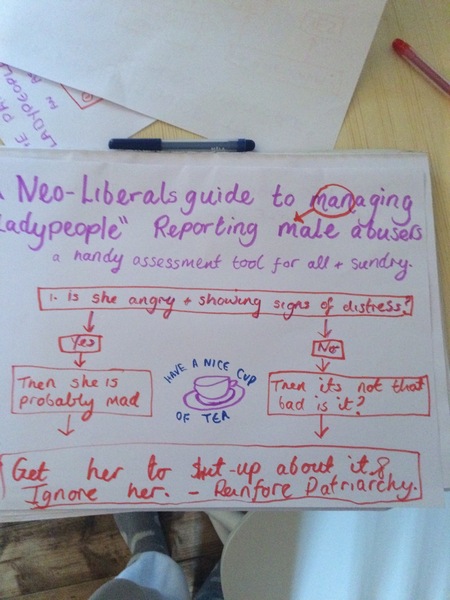 Neo-Liberals guide to managing
Ladypeople" Reporting male abusers
a handy assessment tool for all + sundry.
1. Is she angry + showing signs of distress?
Yes
No
Then she is
probably mad
HAVE A NICE CUP
OF TEA
Then its not that
bad is it?
Get her to shut-up about it &
Ignore her. - Reinfore Patriarchy.
LADYPEOPLE